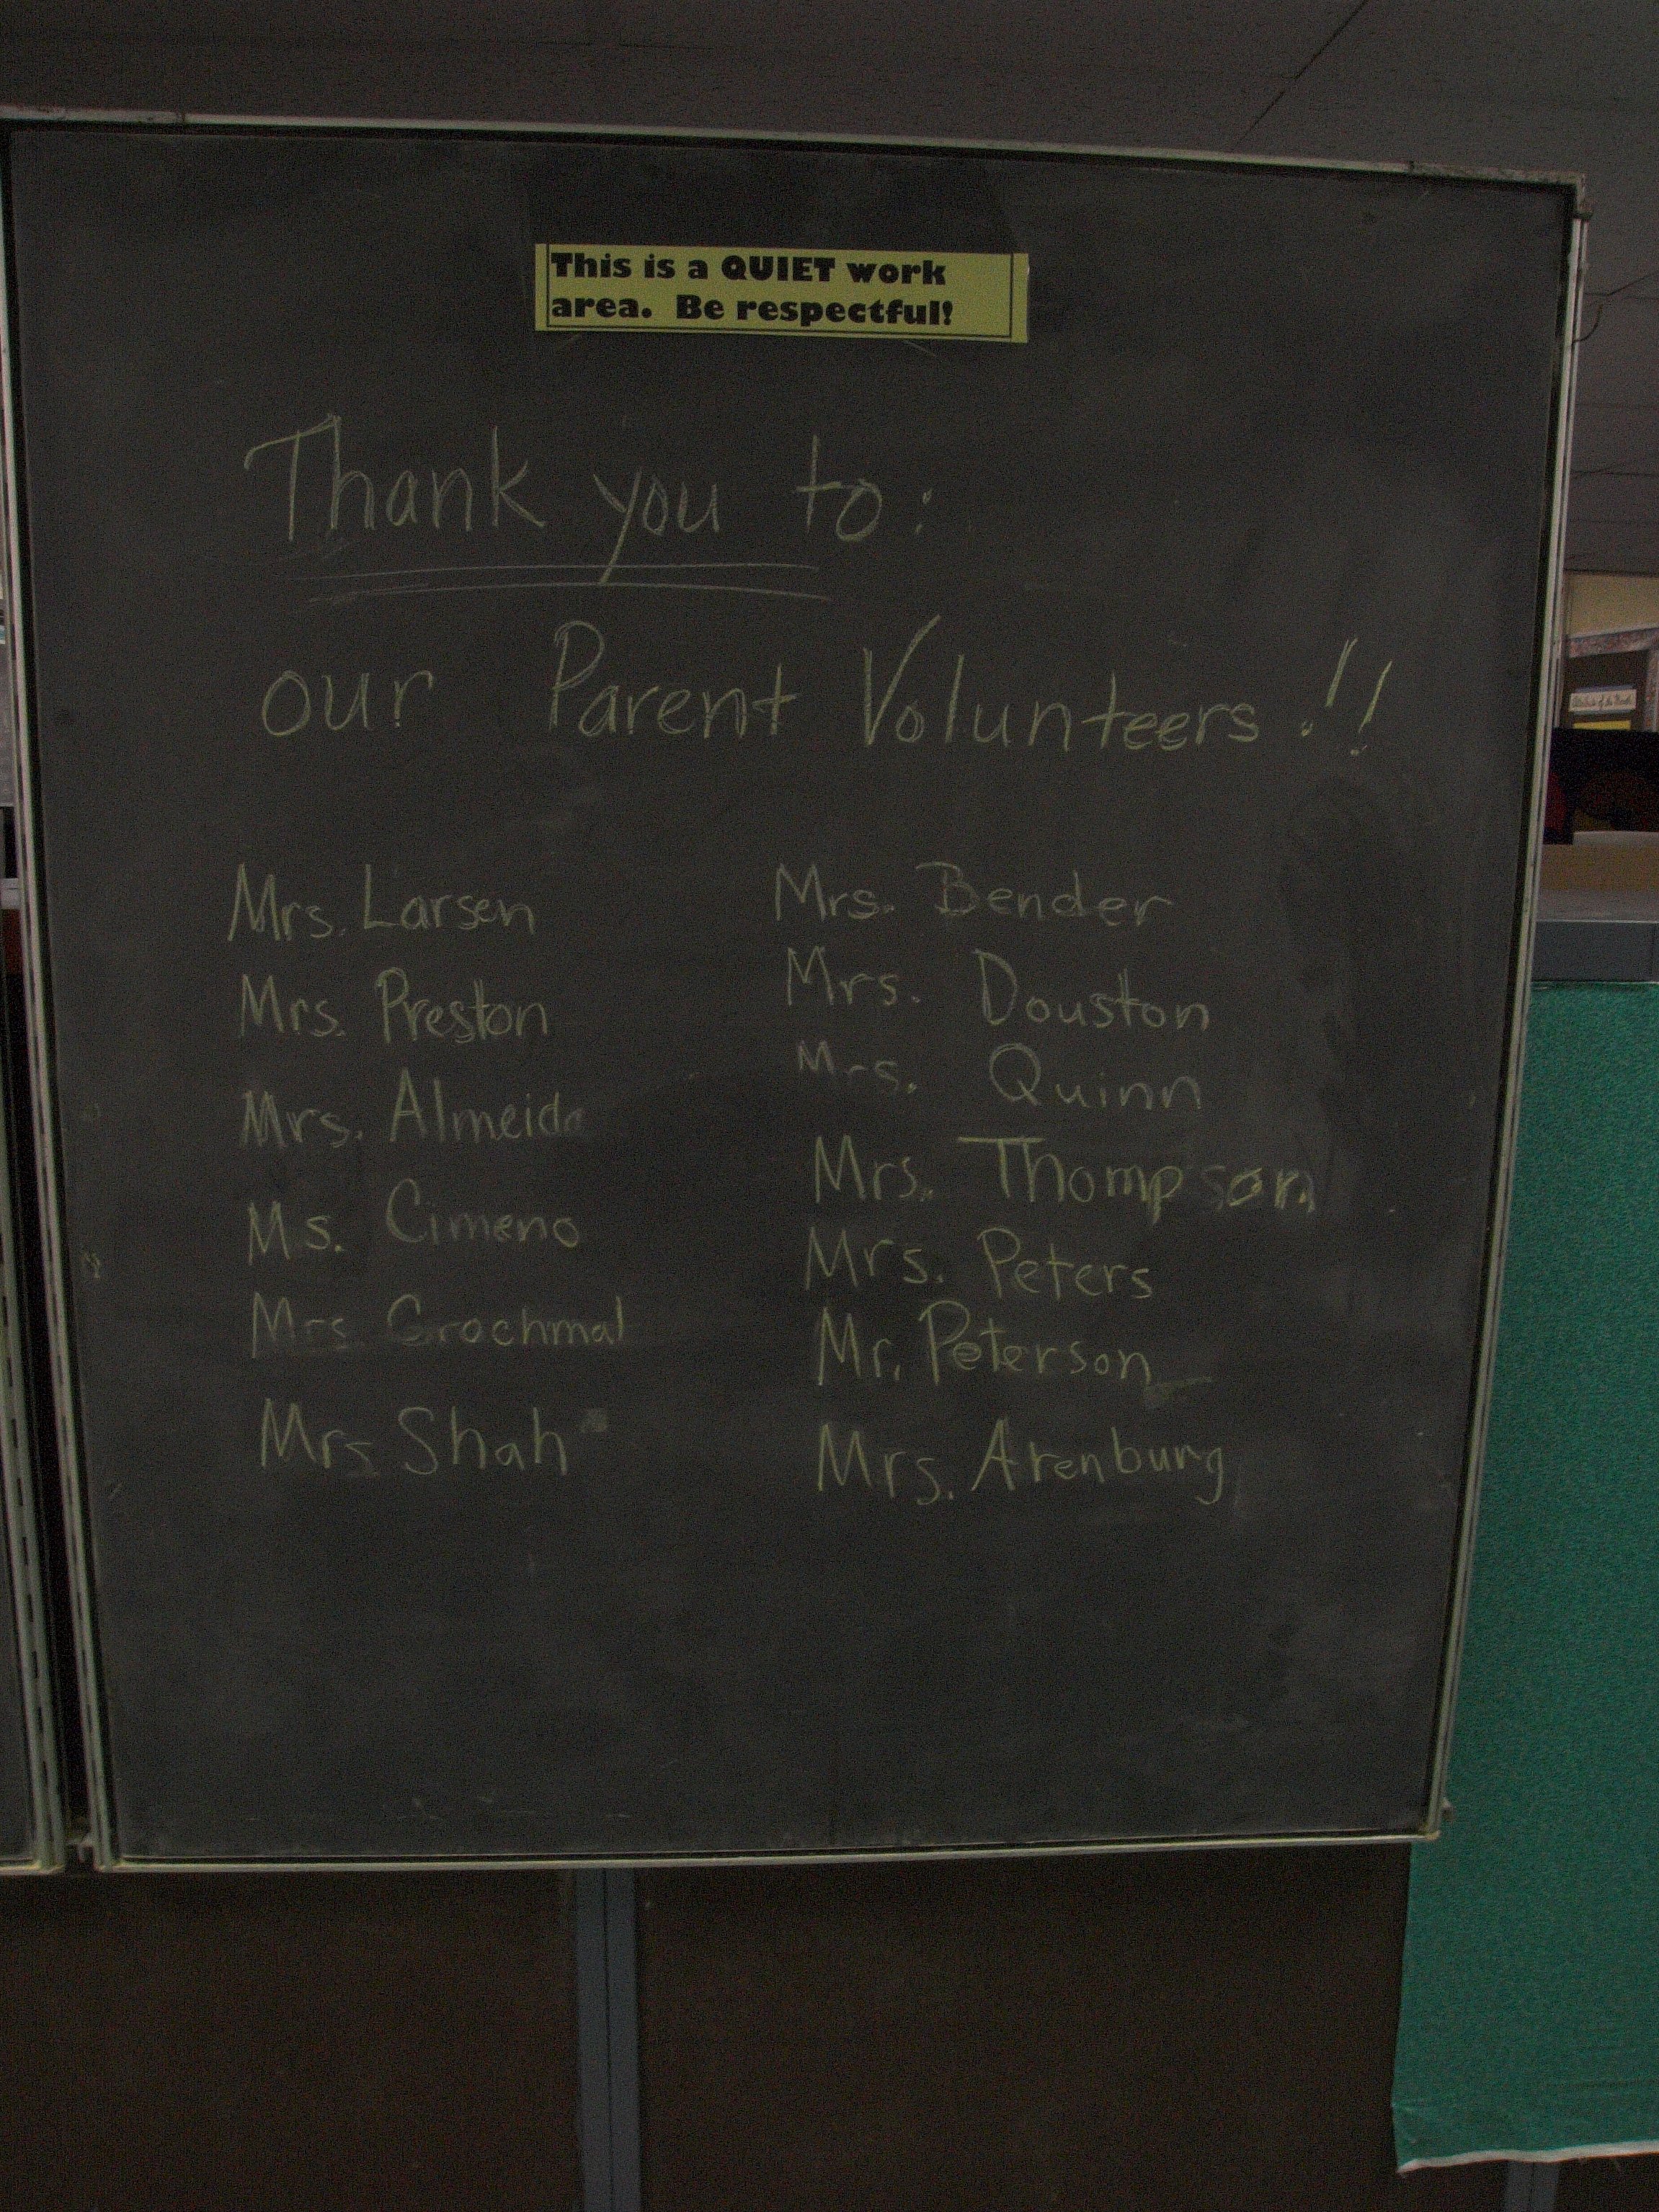 This is a QUIET work
area. Be respectful!
Thank you to:
our Parent Volunteers!!
Mrs. Larsen
Mrs. Preston
Mrs. Almeida
Ms. Cimeno
Mrs Grochmal
Mrs Shah
Mrs. Bender
Mrs. Douston
Mrs. Quinn
Mrs. Thompson
Mrs. Peters
Mr. Peterson
Mrs. Arenburg